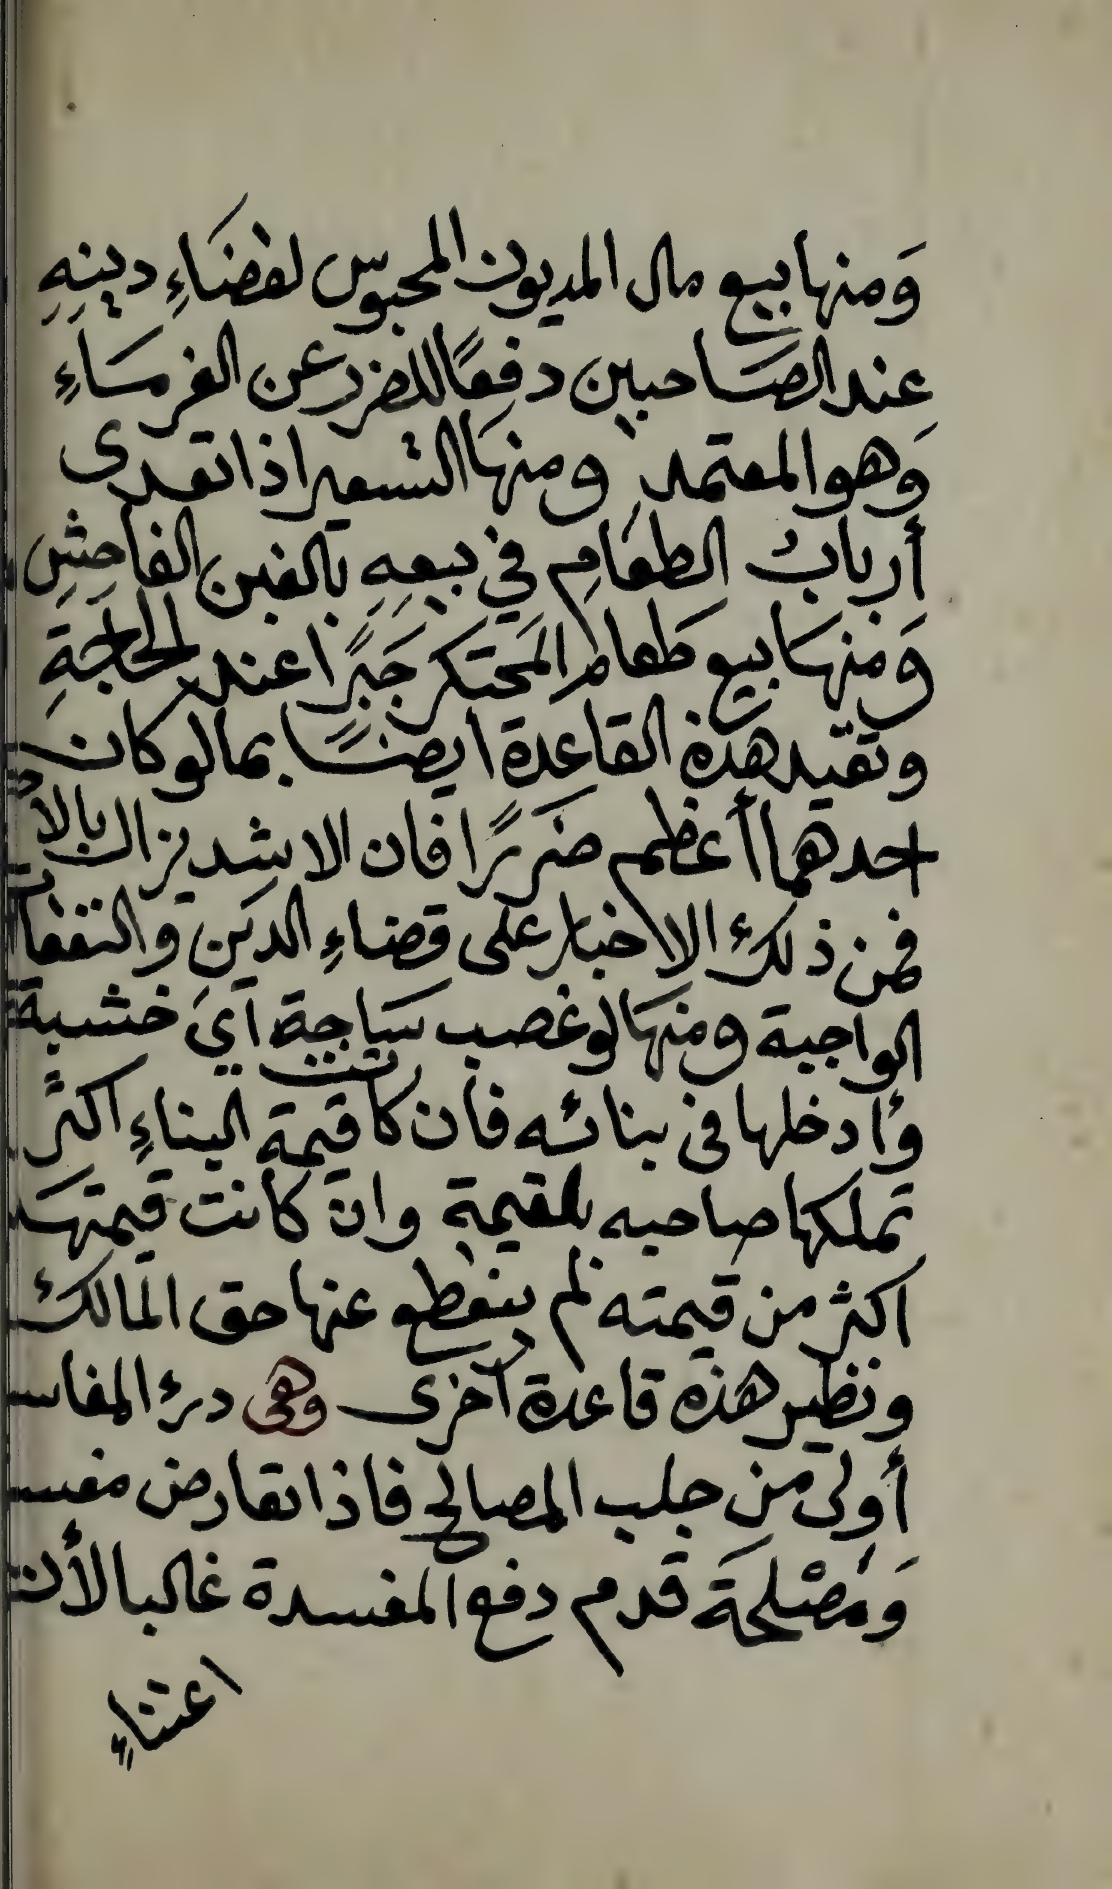 وَمنها بيع مال المديون المحبوس لقضَاءِ دينِهِ
عِند الصَاحبين دفعًا للضرر عن الغرمَاءِ
وَهو المعتمد ومنهَا التسعير اذا تعدى
أربابُ الطعَامِ في بيعِهِ بالغبن الفاحِشِ
وَمنهَا بيع طَعام المحَتكر جَبرًا عند الحَاجَةِ
وتقيد هذه القاعدة ايضًا بما لو كان
احدهما أعظم ضَررًا فان الاشد يزال بالأ
فمن ذلك الاخبار على قضاءِ الدَينِ والنفقات
الواجبة ومنهَا لو غصب سَاجة أيَ خشبة
وأدخلها فى بنائه فان كانت قيمة البناءِ اكثر
تملكها صاحبه بالقيمة وان كانت قيمتهَا
اكثر من قيمته لم ينقطع عنها حق المالك
ونظير هذه قاعدة أخرى وهى درء المفاسد
أولى من جلب المصالح فاذا تعارض مفسد
وَمَصْلحَة قدم دفع المفسدة غالبا لأن
اعتناءِ